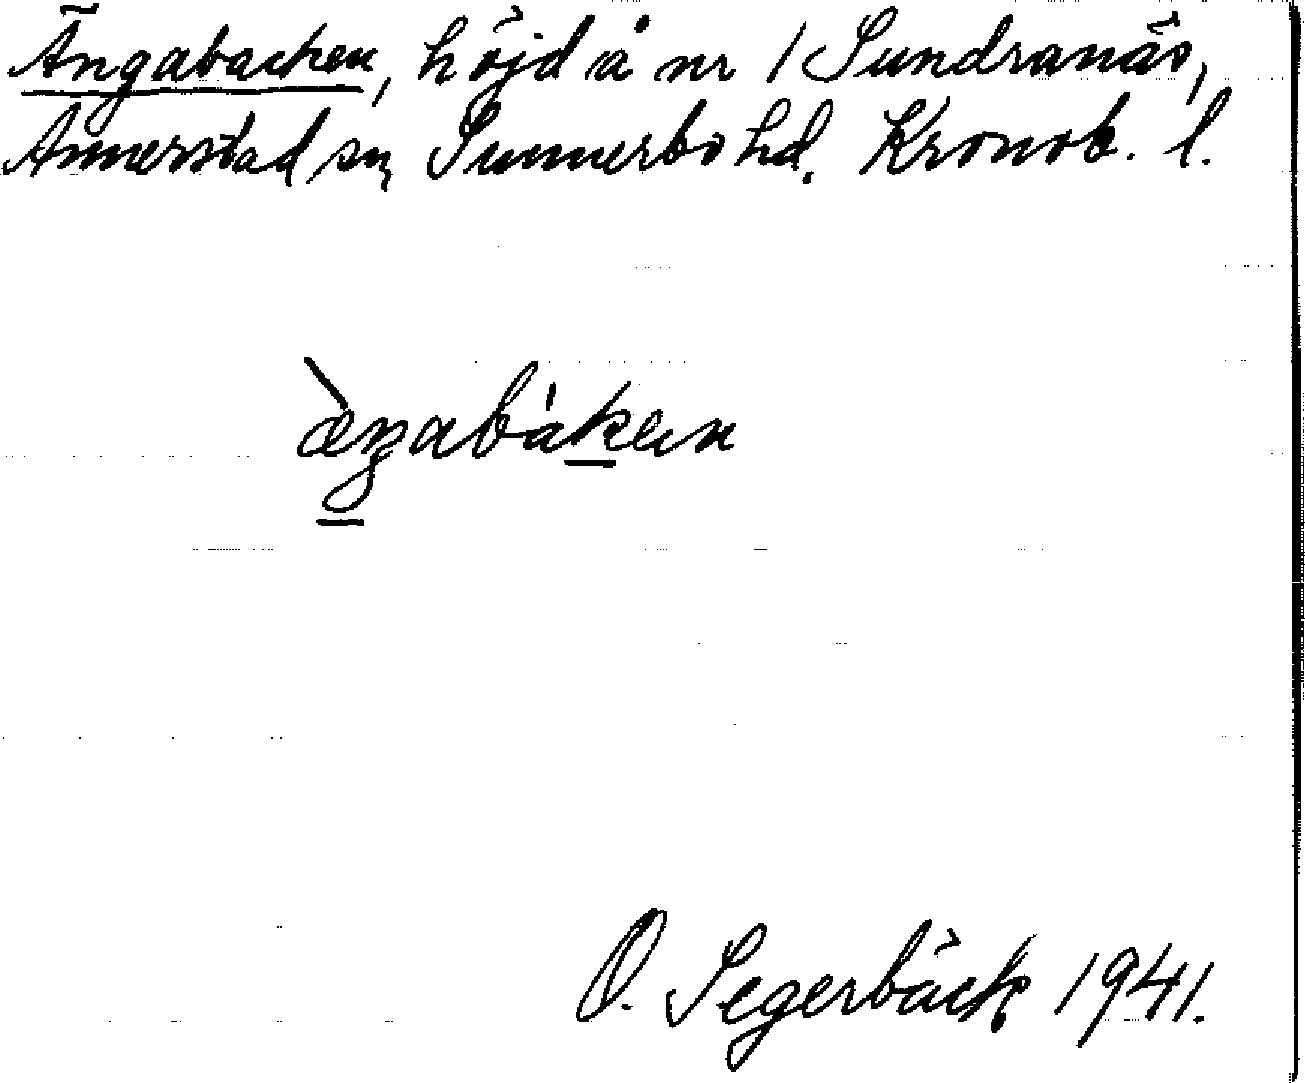 Ängabacken, höjd å nr 1 Sundranäs,
Annerstad sn, Sunnerbo hd. Kronob. l.
æ̀ŋabàken
O. Segerbäck 1941.